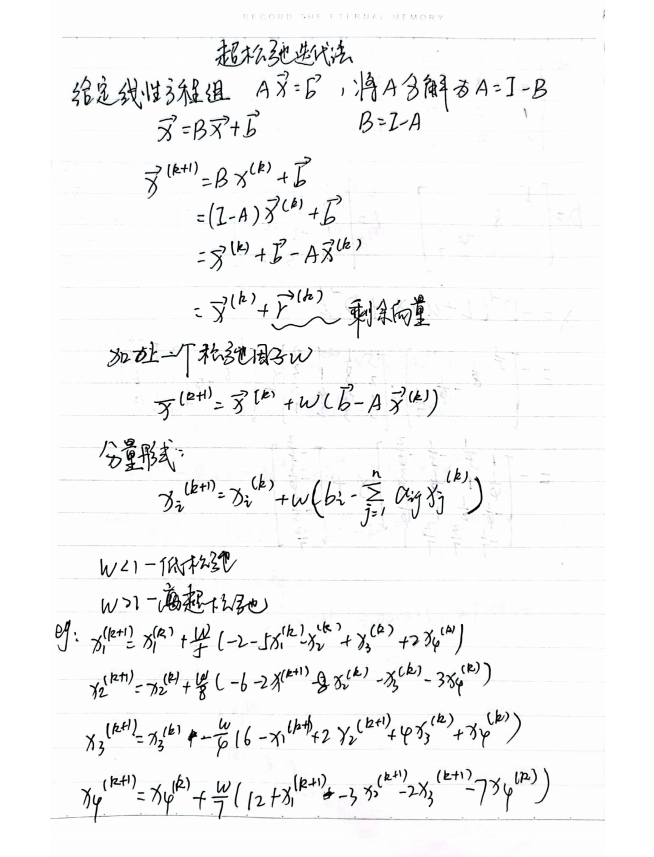 RECORD THE ETERNAL MEMORY
超松弛迭代法
给定线性方程组 Ax⃗=b⃗，将A分解为A=I-B
x⃗=Bx⃗+b⃗ B=I-A
x⃗^(k+1)=Bx^(k)+b⃗
=(I-A)x⃗^(k)+b⃗
=x⃗^(k)+b⃗-Ax⃗^(k)
=x⃗^(k)+r⃗^(k) 剩余向量
加上一个松弛因子w
x⃗^(k+1)=x⃗^(k)+w(b⃗-Ax⃗^(k))
分量形式:
x_i^(k+1)=x_i^(k)+w(b_i-∑_{j=1}^{n} a_ij x_j^(k))
w<1-低松弛
w>1-超松弛
eg: x₁^(k+1)=x₁^(k)+w/5(-2-5x₁^(k)-x₂^(k)+x₃^(k)+2x₄^(k))
x₂^(k+1)=x₂^(k)+w/8(-6-2x₁^(k+1)-8x₂^(k)-x₃^(k)-3x₄^(k))
x₃^(k+1)=x₃^(k)-w/4(6-x₁^(k+1)+2x₂^(k+1)+4x₃^(k)+x₄^(k))
x₄^(k+1)=x₄^(k)+w/7(12+x₁^(k+1)-3x₂^(k+1)-2x₃^(k+1)-7x₄^(k))